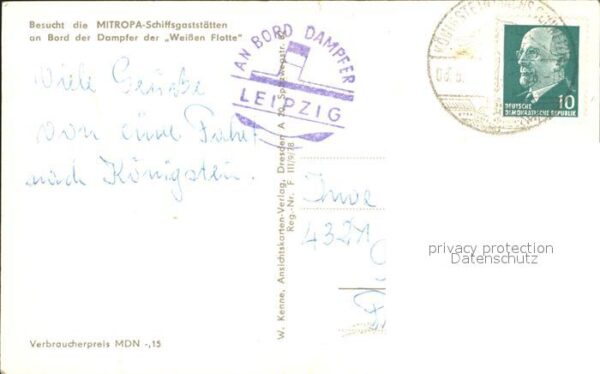 Besucht die MITROPA-Schiffsgaststätten
an Bord der Dampfer der „Weißen Flotte"
Viele Grüße
von eine Fahrt
nach Königstein.
AN BORD DAMPFER
LEIPZIG
10
DEUTSCHE
DEMOKRATISCHE REPUBLIK
W. Kenne, Ansichtskarten-Verlag, Dresden A 20, Spitzwegstr.
Reg.-Nr. F 111/9/78
4321
privacy protection
Datenschutz
Verbraucherpreis MDN -,15